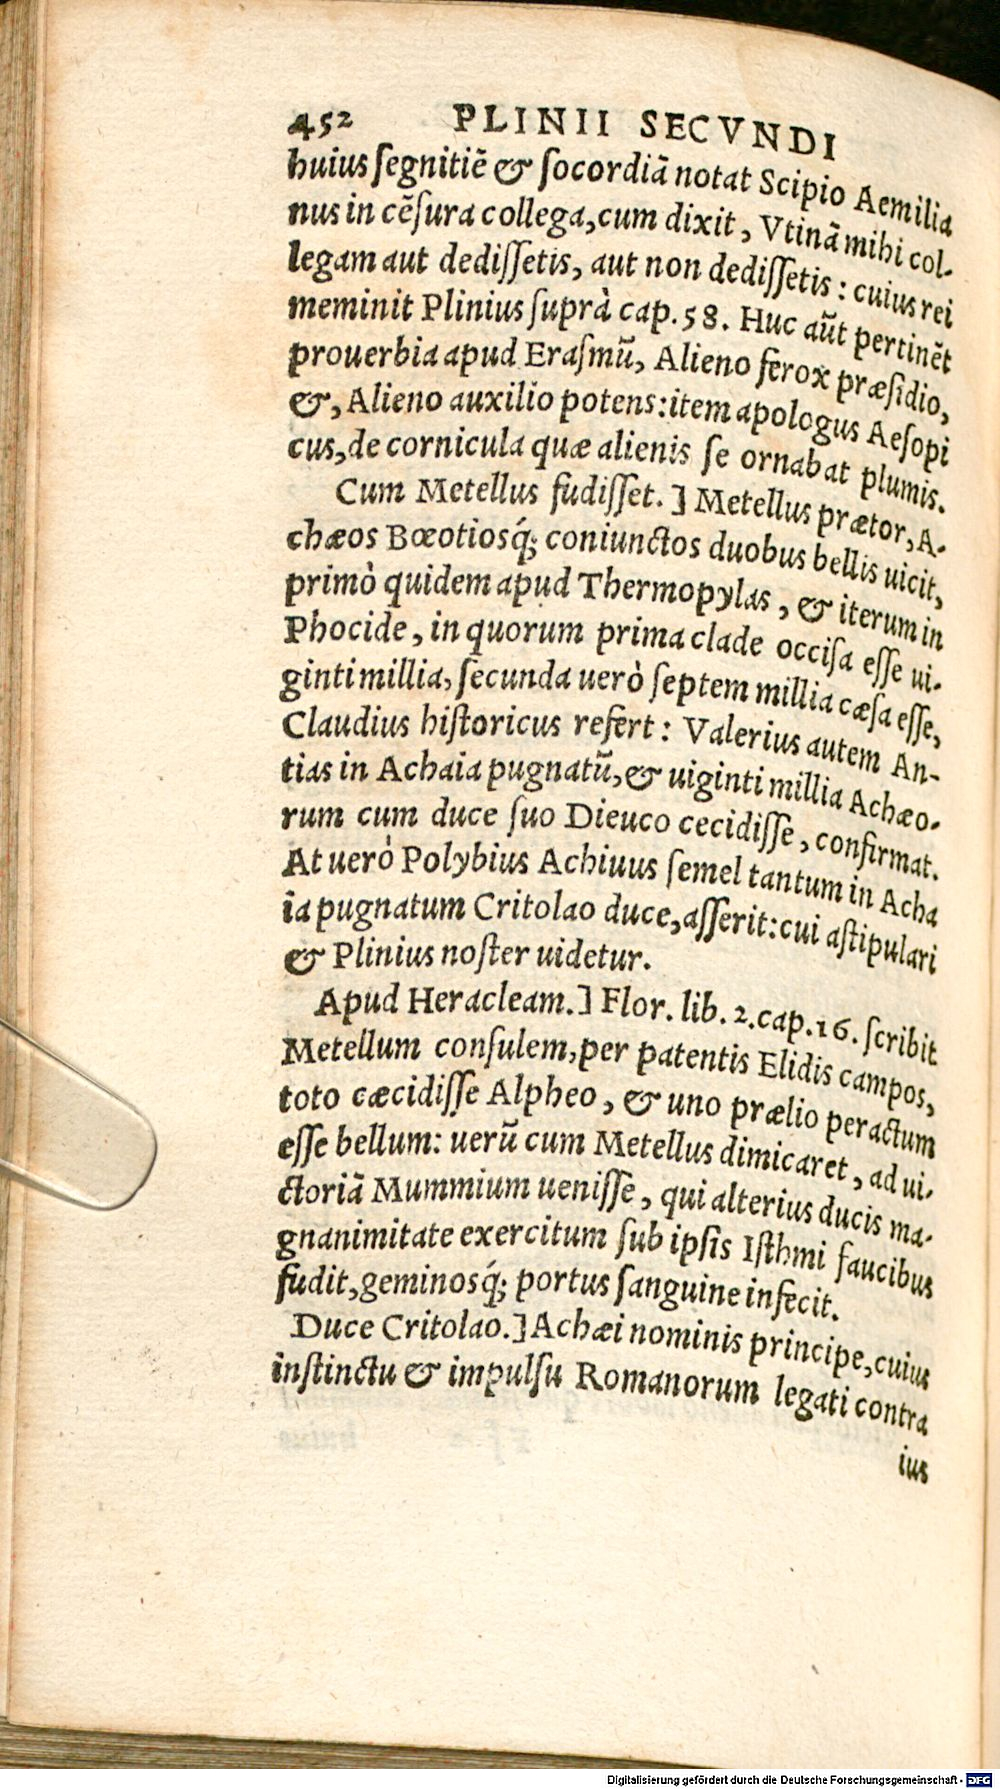 452 PLINII SECVNDI
huius ſegnitiẽ & ſocordiã notat Scipio Aemilia
nus in cẽſura collega, cum dixit, Vtinã mihi col-
legam aut dediſſetis, aut non dediſſetis: cuius rei
meminit Plinius ſuprà cap. 58. Huc aũt pertinẽt
prouerbia apud Eraſmũ, Alieno ferox præſidio,
&, Alieno auxilio potens: item apologus Aeſopi
cus, de cornicula quæ alienis ſe ornabat plumis.
Cum Metellus fudiſſet.] Metellus prætor, A-
chæos Bœotiosq́; coniunctos duobus bellis uicit,
primò quidem apud Thermopylas, & iterum in
Phocide, in quorum prima clade occiſa eſſe ui-
ginti millia, ſecunda uerò ſeptem millia cæſa eſſe,
Claudius hiſtoricus refert: Valerius autem An-
tias in Achaia pugnatũ, & uiginti millia Achæo-
rum cum duce ſuo Dieuco cecidiſſe, confirmat.
At uerò Polybius Achiuus ſemel tantum in Acha
ia pugnatum Critolao duce, aſſerit: cui aſtipulari
& Plinius noſter uidetur.
Apud Heracleam.] Flor. lib. 2. cap. 16. ſcribit
Metellum conſulem, per patentis Elidis campos,
toto cæcidiſſe Alpheo, & uno prælio peractum
eſſe bellum: uerũ cum Metellus dimicaret, ad ui-
ctoriã Mummium ueniſſe, qui alterius ducis ma-
gnanimitate exercitum ſub ipſis Iſthmi faucibus
fudit, geminosq́; portus ſanguine infecit.
Duce Critolao.] Achæi nominis principe, cuius
inſtinctu & impulſu Romanorum legati contra
ius
Digitalisierung gefördert durch die Deutsche Forschungsgemeinschaft - DFG